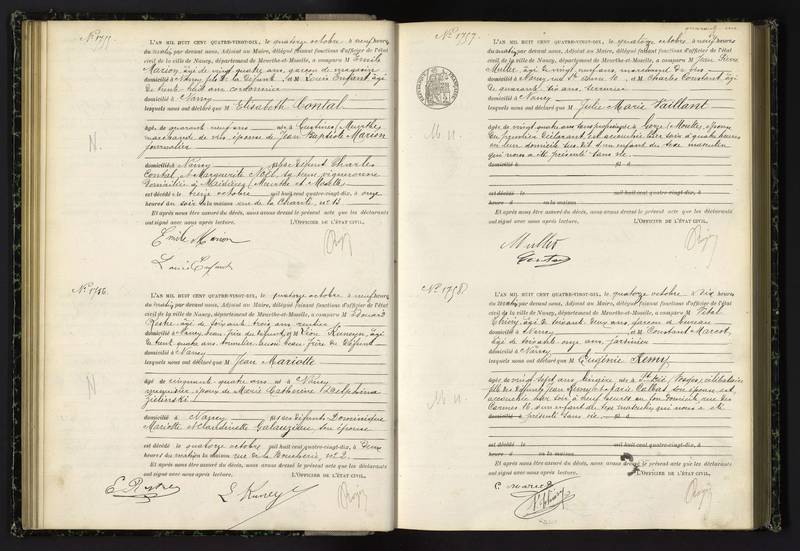 L'AN MIL HUIT CENT QUATRE-VINGT-DIX, le quatorze octobre à neuf heures
du matin par devant nous, Adjoint au Maire, délégué faisant fonctions d'officier de l'état
civil de la ville de Nancy, département de Meurthe-et-Moselle, a comparu M Emile
Marion, âgé de vingt quatre ans, garçon de magasin
domicilié à Nancy, fils de la défunte, et M Louis Enfant âgé
de trente huit ans cordonnier
domicilié à Nancy
lesquels nous ont déclaré que M Elisabeth Contal
âgée de quarante neuf ans née à Custines (Meurthe)
marchande de vins, épouse de Jean Baptiste Marion
journalier
domiciliée à Nancy Charles
Contal, et Marguerite Noël, sa veuve vigneronne
domiciliée à (Meurthe et Moselle)
est décédée le treize octobre mil huit cent quatre-vingt-dix, à onze
heures du soir en la maison rue de la Charité, n° 13
Et après nous être assuré du décès, nous avons dressé le présent acte que les déclarants
ont signé avec nous après lecture. L'OFFICIER DE L'ÉTAT CIVIL.
Emile Marion
Louis Enfant
N.
N° 1756.
L'AN MIL HUIT CENT QUATRE-VINGT-DIX, le quatorze octobre à neuf heures
du matin par devant nous, Adjoint au Maire, délégué faisant fonctions d'officier de l'état
civil de la ville de Nancy, département de Meurthe-et-Moselle, a comparu M Edouard
âgé de soixante trois ans rentier
domicilié à Nancy, beau frère du défunt, et M Léon âgé
de trente quatre ans, aussi beau frère du défunt
domicilié à Nancy
lesquels nous ont déclaré que M Jean Mariotte
âgé de cinquante quatre ans né à Nancy
époux de Marie Catherine Delphine
Zielinski
domicilié à Nancy fils des défunts Dominique
Mariotte et son épouse
est décédé le quatorze octobre mil huit cent quatre-vingt-dix, à deux
heures du matin en la maison rue de la Boucherie, n° 2
Et après nous être assuré du décès, nous avons dressé le présent acte que les déclarants
ont signé avec nous après lecture. L'OFFICIER DE L'ÉTAT CIVIL.
N
N° 1757.
L'AN MIL HUIT CENT QUATRE-VINGT-DIX, le quatorze octobre à neuf heures
du matin par devant nous, Adjoint au Maire, délégué faisant fonctions d'officier de l'état
civil de la ville de Nancy, département de Meurthe-et-Moselle, a comparu M Jean Pierre
Muller, âgé de vingt neuf ans, marchand de
domicilié à Nancy, et M Charles Constant âgé
de quarante six ans, terrassier
domicilié à Nancy
lesquels nous ont déclaré que M Julie Marie Vaillant
âgée de vingt quatre ans née à (Moselle), épouse
du premier déclarant, est accouchée hier soir à quatre heures
en leur domicile d'un enfant du sexe masculin
qui nous a été présenté sans vie.
domicilié à
est décédé le mil huit cent quatre-vingt-dix, à
heures d en la maison
Et après nous être assuré du décès, nous avons dressé le présent acte que les déclarants
ont signé avec nous après lecture. L'OFFICIER DE L'ÉTAT CIVIL.
Muller
M n.
N° 1758
L'AN MIL HUIT CENT QUATRE-VINGT-DIX, le quatorze octobre à dix heures
du matin par devant nous, Adjoint au Maire, délégué faisant fonctions d'officier de l'état
civil de la ville de Nancy, département de Meurthe-et-Moselle, a comparu M Vital
Thiéry, âgé de soixante deux ans, garçon de bureau
domicilié à Nancy et M Constant Marcot
âgé de soixante onze ans jardinier
domicilié à Nancy
lesquels nous ont déclaré que M Eugénie Remy
âgée de vingt sept ans lingère née à St Dié, Vosges, célibataire
fille des défunts Jean Remy et Marie son épouse, est
accouchée hier soir à neuf heures en son domicile, rue des
Carmes 16, d'un enfant du sexe masculin qui nous a été
présenté sans vie
est décédé le mil huit cent quatre-vingt-dix, à
heures d en la maison
Et après nous être assuré du décès, nous avons dressé le présent acte que les déclarants
ont signé avec nous après lecture. L'OFFICIER DE L'ÉTAT CIVIL.
M n.